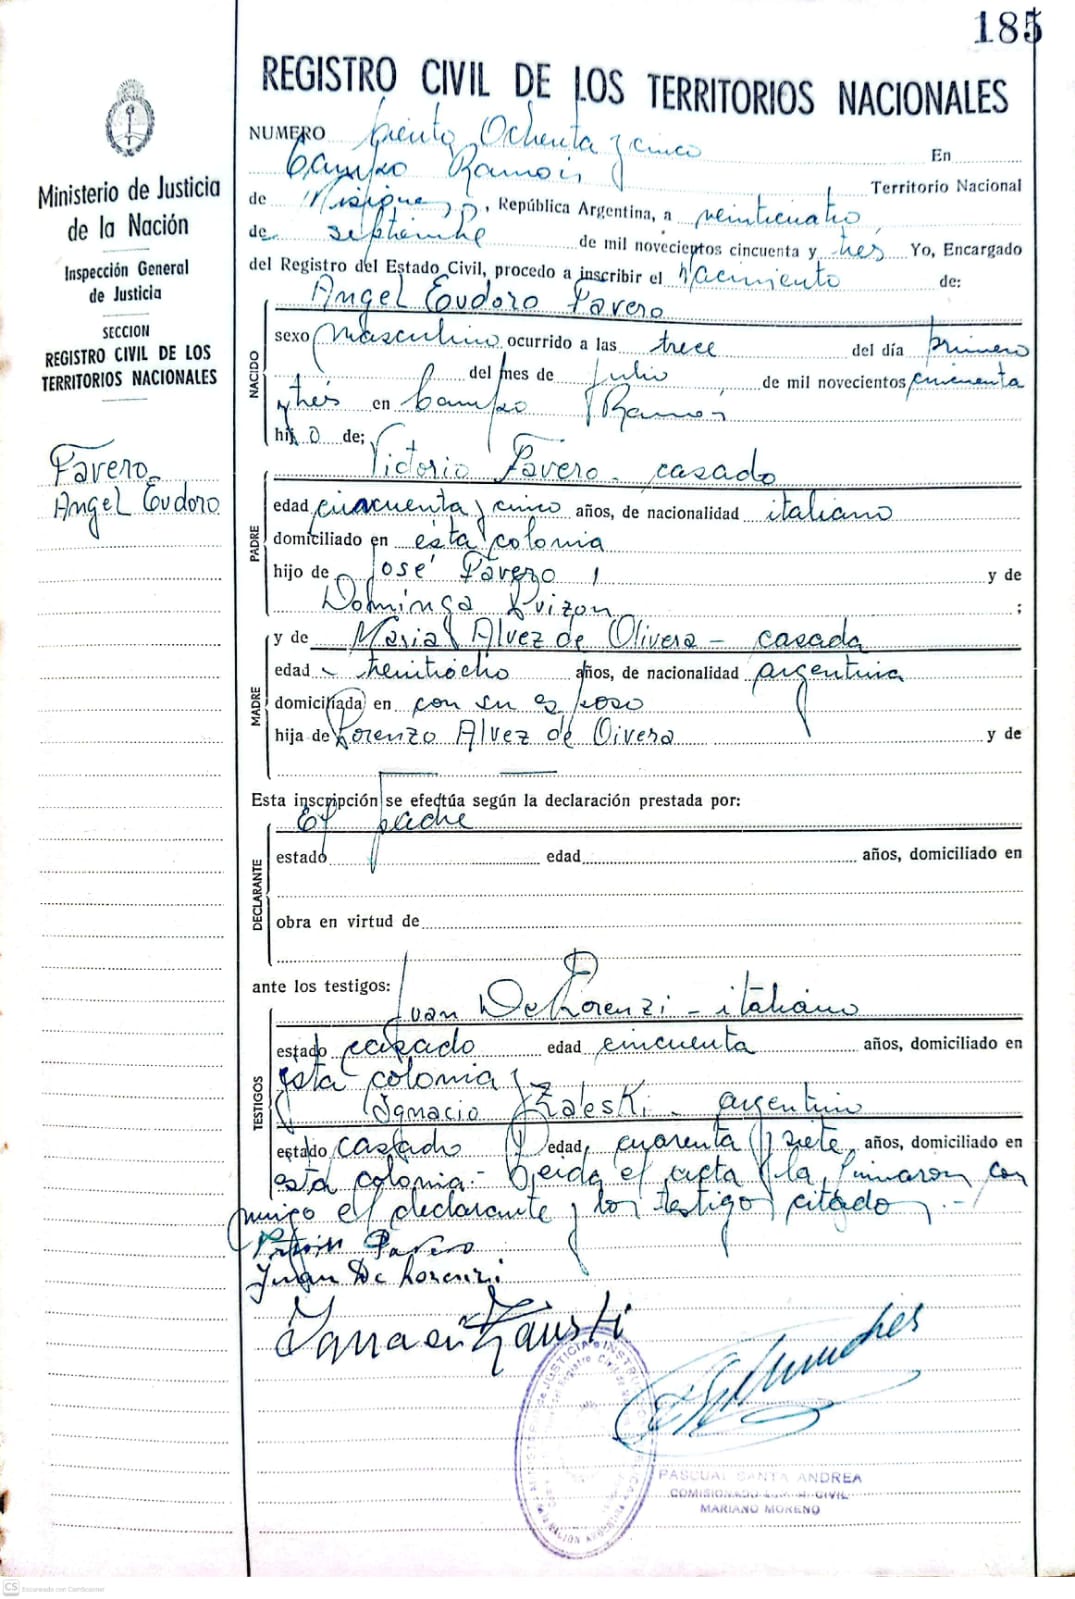 185
REGISTRO CIVIL DE LOS TERRITORIOS NACIONALES
Ministerio de Justicia
de la Nación
Inspección General
de Justicia
SECCION
REGISTRO CIVIL DE LOS
TERRITORIOS NACIONALES
Favero
Angel Eudoro
NUMERO Ciento Ochenta y cinco En
Campo Ramón Territorio Nacional
de Misiones, República Argentina, a veinticuatro
de septiembre de mil novecientos cincuenta y tres Yo, Encargado
del Registro del Estado Civil, procedo a inscribir el nacimiento de:
NACIDO
Angel Eudoro Favero
sexo masculino ocurrido a las trece del día primero
del mes de Julio de mil novecientos cincuenta
y tres en Campo Ramón
hijo de:
PADRE
Victorio Favero - casado
edad cincuenta y cinco años, de nacionalidad italiano
domiciliado en esta colonia
hijo de José Favero y de
Dominga ;
MADRE
y de Maria Alvez de Olivera - casada
edad treintiocho años, de nacionalidad argentina
domiciliada en con su esposo
hija de Lorenzo Alvez de Oivera y de
Esta inscripción se efectúa según la declaración prestada por:
El padre
DECLARANTE
estado edad años, domiciliado en
obra en virtud de
ante los testigos:
TESTIGOS
Juan De Lorenzi - italiano
estado casado edad cincuenta años, domiciliado en
esta colonia y
Ignacio Zaleski - argentino
estado casado edad cuarenta y siete, años, domiciliado en
esta colonia - Leida el acta la firmaron con
migo el declarante y los testigo citado .-
Favero
Juan De Lorenzi
PASCUAL SANTA ANDREA
COMISIONADO CIVIL
MARIANO MORENO
CS Escaneado con CamScanner